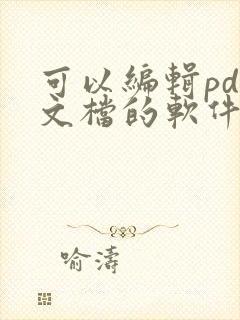 可以編輯pd
文檔的軟件
喻濤